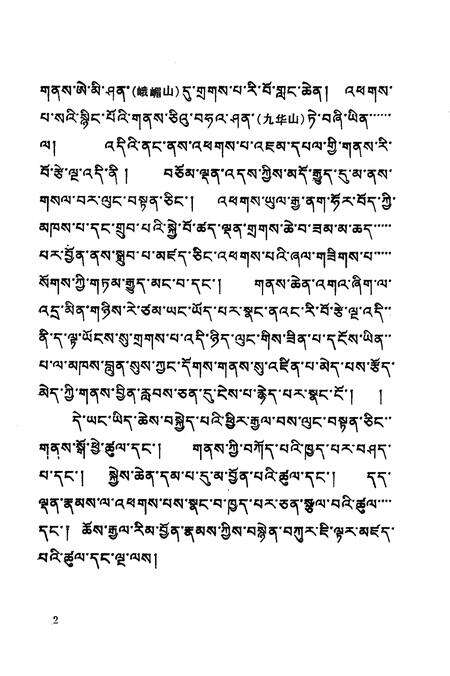 གནས་ཨེ་མི་ཤན་(峨嵋山)དུ་གྲགས་པ་རི་བོ་གླང་ཆེན། འཕགས་
པ་སའི་སྙིང་པོའི་གནས་ཅིའུ་བཧྭ་ཤན་(九华山)ཏེ་བཞི་ཡིན་……
ལ། འདིའི་ནང་ནས་འཕགས་པ་འཇམ་དཔལ་གྱི་གནས་རི་
བོ་རྩེ་ལྔ་འདི་ནི། བཅོམ་ལྡན་འདས་ཀྱིས་མདོ་རྒྱུད་དུ་མ་ནས་
གསལ་བར་ལུང་བསྟན་ཅིང་། འཕགས་ཡུལ་རྒྱ་ནག་ཧོར་བོད་ཀྱི་
མཁས་པ་དང་གྲུབ་པའི་སྐྱེ་བོ་ཚད་ལྡན་གྲགས་ཆེ་བ་ཟམ་མ་ཆད་……
པར་བྱོན་ནས་སྒྲུབ་པ་མཛད་ཅིང་འཕགས་པའི་ཞལ་གཟིགས་པ་……
སོགས་ཀྱི་གཏམ་རྒྱུད་མང་བ་དང་། གནས་ཆེན་འགའ་ཞིག་ལ་
འདྲ་མིན་གཉིས་རེ་ཙམ་ཡང་ཡོད་པར་སྣང་ནའང་རི་བོ་རྩེ་ལྔ་འདི་
ནི་ད་ལྟ་ཡོངས་སུ་གྲགས་པ་འདི་ཉིད་ལུང་གིས་ཟིན་པ་དངོས་ཡིན་
པ་ལ་མཁས་བླུན་སུས་ཀྱང་དོགས་གནས་སུ་འཛིན་པ་མེད་པས་རྩོད་
མེད་ཀྱི་གནས་བྱིན་རླབས་ཅན་དུ་ངེས་པ་རྙེད་པར་སྣང་ངོ་། །
དེ་ཡང་ཡིད་ཆེས་བསྐྱེད་པའི་ཕྱིར་རྒྱལ་བས་ལུང་བསྟན་ཅིང་
གནས་སྒོ་ཕྱེ་ཚུལ་དང་། གནས་ཀྱི་བཀོད་པའི་ཁྱད་པར་བཤད་
པ་དང་། སྐྱེས་ཆེན་དམ་པ་དུ་མ་བྱོན་པའི་ཚུལ་དང་། དད་
ལྡན་རྣམས་ལ་འཕགས་པས་སྣང་བ་ཁྱད་པར་ཅན་སྩལ་བའི་ཚུལ་……
དང་། ཆོས་རྒྱལ་རིམ་བྱོན་རྣམས་ཀྱིས་བསྙེན་བཀུར་ཇི་ལྟར་མཛད་
པའི་ཚུལ་དང་ལྔ་ལས།
2